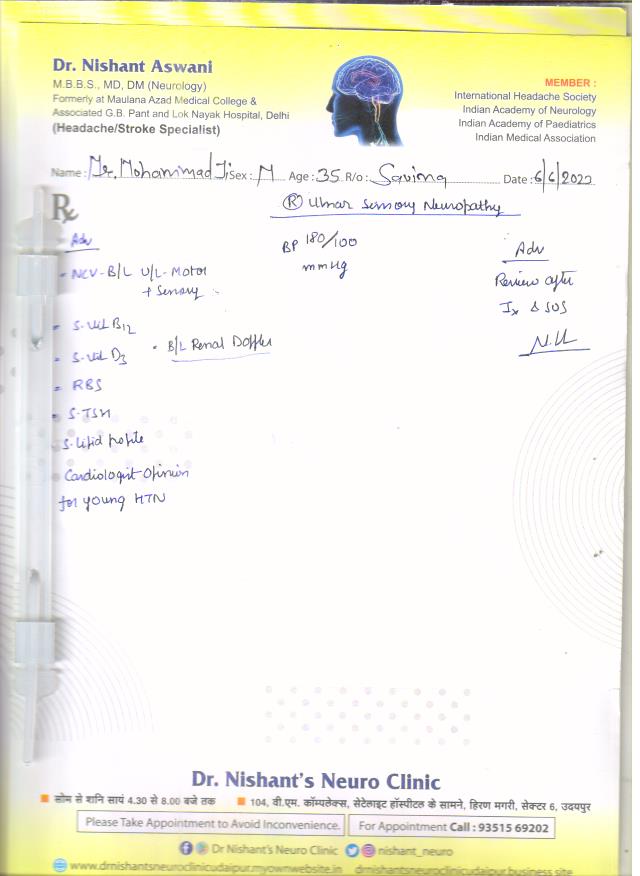 Dr. Nishant Aswani
M.B.B.S., MD, DM (Neurology)
Formerly at Maulana Azad Medical College &
Associated G.B. Pant and Lok Nayak Hospital, Delhi
(Headache/Stroke Specialist)
MEMBER :
International Headache Society
Indian Academy of Neurology
Indian Academy of Paediatrics
Indian Medical Association
Name : Mr. Mohammad Ji Sex : M Age : 35 R/o : Savina Date : 6/6/2022
Rx
(R) Ulnar Sensory Neuropathy
Adv
- NCV - B/L U/L - Motor
+ Sensory
- S. Vit B12
- S. Vit D3
- B/L Renal Doppler
- RBS
- S. TSH
S. Lipid profile
Cardiologist Opinion
for young HTN
BP 180/100
mmHg
Adv
Review after
Ix & SOS
Dr. Nishant's Neuro Clinic
सोम से शनि सायं 4.30 से 8.00 बजे तक
104, वी.एम. कॉम्पलेक्स, सेटेलाइट हॉस्पीटल के सामने, हिरण मगरी, सेक्टर 6, उदयपुर
Please Take Appointment to Avoid Inconvenience.
For Appointment Call : 93515 69202
Dr Nishant's Neuro Clinic
nishant_neuro
www.drnishantsneuroclinicudaipur.myownwebsite.in
drnishantsneuroclinicudaipur.business.site